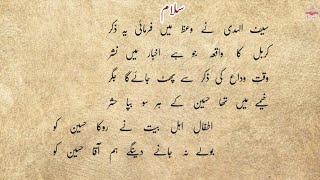 سلام
سیف الہدی نے وعظ میں فرمائی یہ ذکر
کربل کا واقعہ جو ہے اخبار میں نشر
وقت وداع کی ذکر سے پھٹ جائےگا جگر
خیمے میں تھا حسین کے ہر سو بپا حشر
اطفال اہل بیت نے روکا حسین کو
بولے نہ جانے دینگے ہم آقا حسین کو